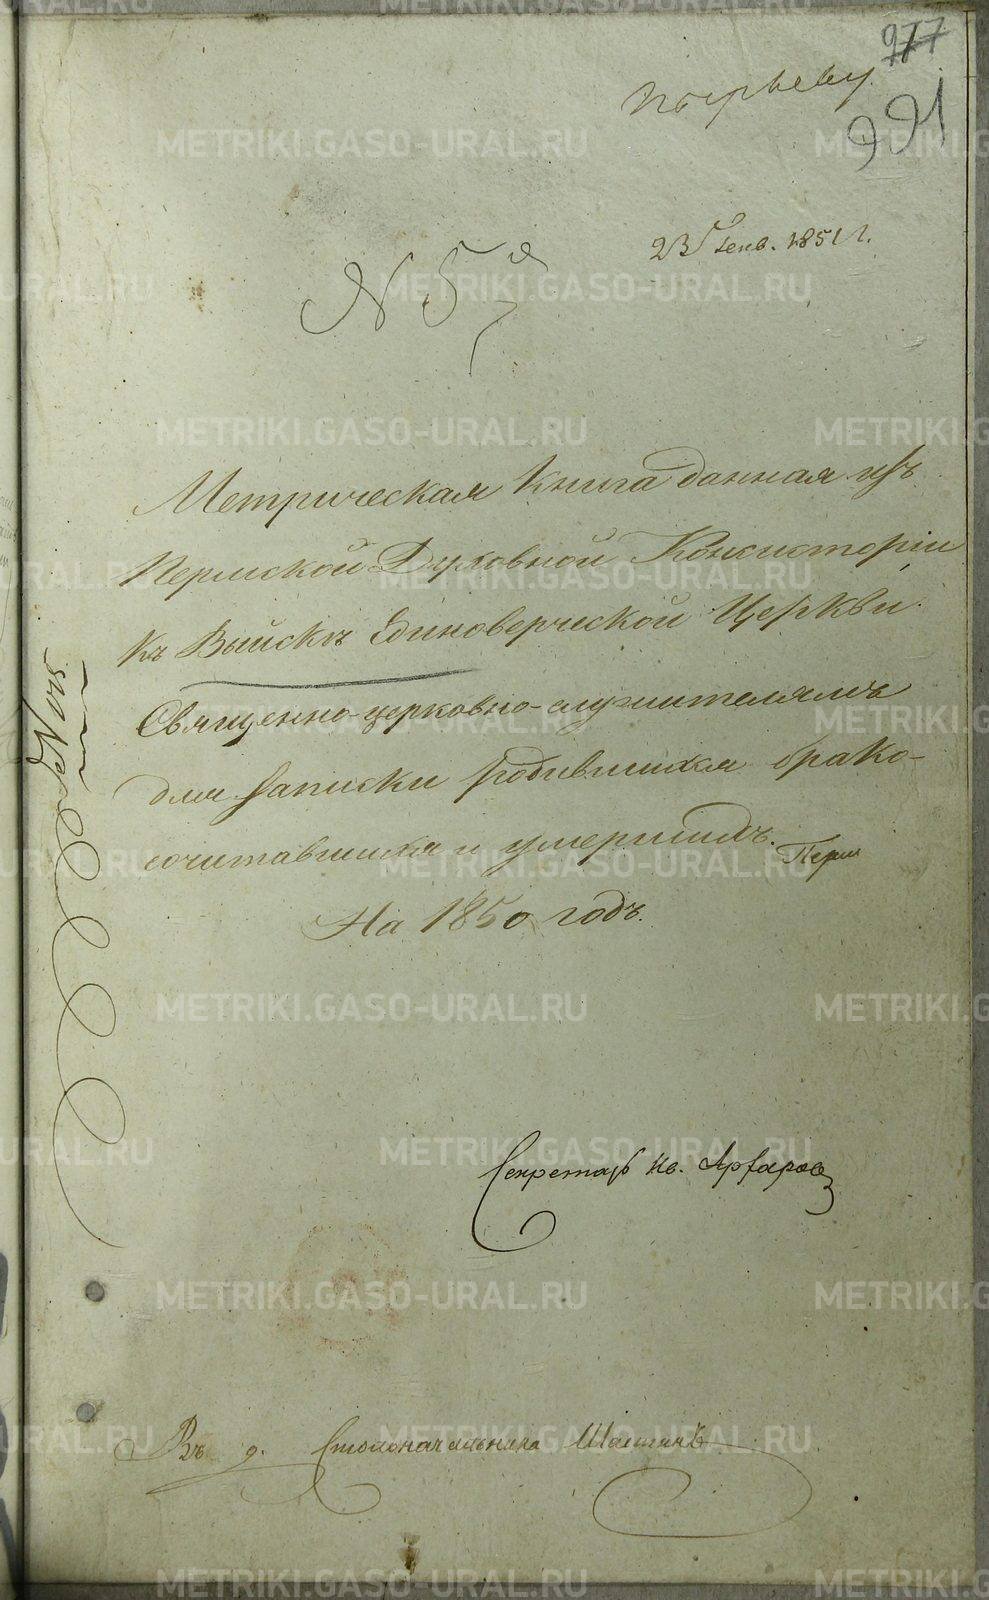 977
991
23 Генв. 1851 г.
N 57
Метрическая книга данная изъ
Пермской Духовной Консисторіи
къ Выйскъ Единоверческой Церкви
Священно-церковно-служителямъ
для записки родившихся брако-
сочитавшихся и умершихъ.
На 1850 годъ.
Секретарь Ив.
Въ д. Столоначальника
METRIKI.GASO-URAL.RU